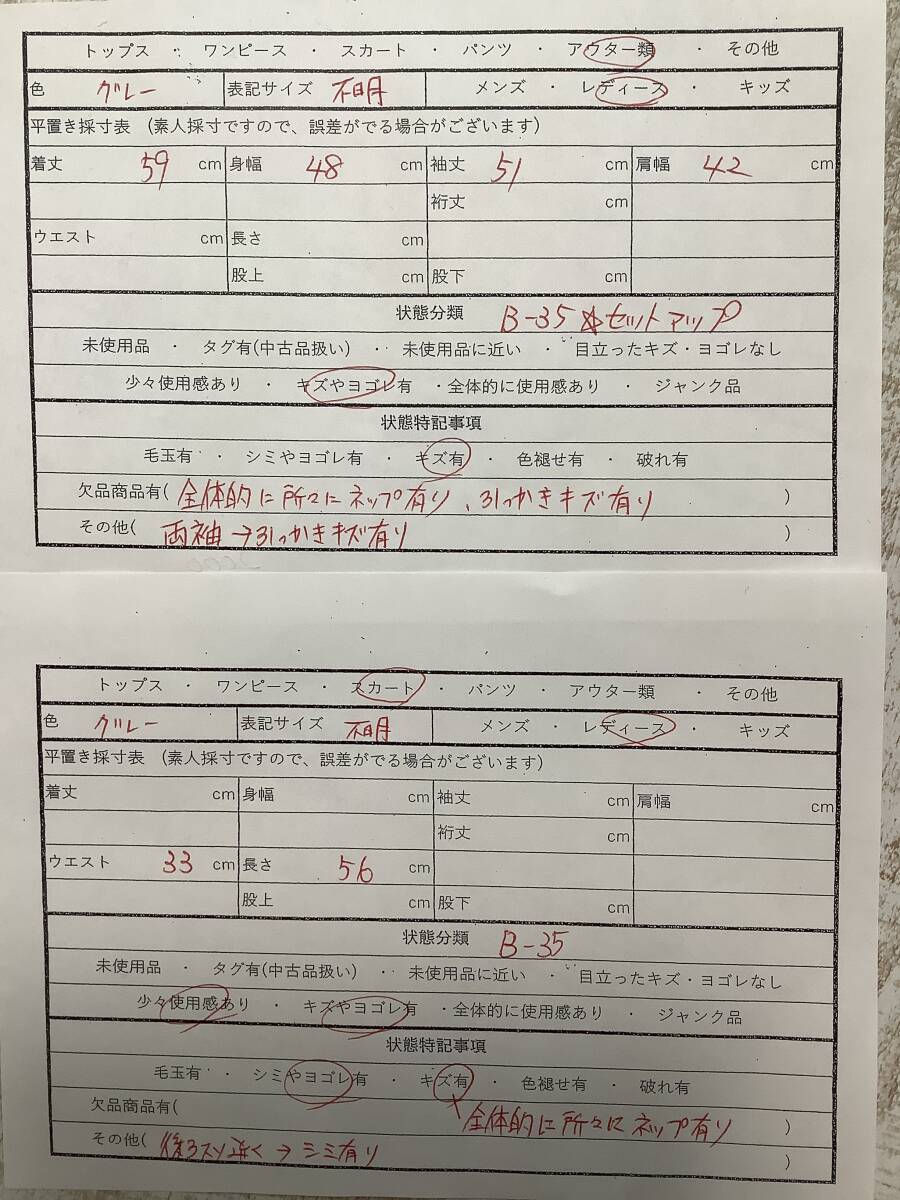 トップス ・ ワンピース ・ スカート ・ パンツ ・ アウター類 ・ その他
色 グレー 表記サイズ 不明 メンズ ・ レディース ・ キッズ
平置き採寸表 (素人採寸ですので、誤差がでる場合がございます)
着丈 59 cm 身幅 48 cm 袖丈 51 cm 肩幅 42 cm
裄丈 cm
ウエスト cm 長さ cm
股上 cm 股下 cm
状態分類 B-35 ☆セットアップ
未使用品 ・ タグ有(中古品扱い) ・ 未使用品に近い ・ 目立ったキズ・ヨゴレなし
少々使用感あり ・ キズやヨゴレ有 ・全体的に使用感あり ・ ジャンク品
状態特記事項
毛玉有 ・ シミやヨゴレ有 ・ キズ有 ・ 色褪せ有 ・ 破れ有
欠品商品有( 全体的に所々にネップ有り、引っかきキズ有り )
その他( 両袖→引っかきキズ有り )
トップス ・ ワンピース ・ スカート ・ パンツ ・ アウター類 ・ その他
色 グレー 表記サイズ 不明 メンズ ・ レディース ・ キッズ
平置き採寸表 (素人採寸ですので、誤差がでる場合がございます)
着丈 cm 身幅 cm 袖丈 cm 肩幅 cm
裄丈 cm
ウエスト 33 cm 長さ 56 cm
股上 cm 股下 cm
状態分類 B-35
未使用品 ・ タグ有(中古品扱い) ・ 未使用品に近い ・ 目立ったキズ・ヨゴレなし
少々使用感あり ・ キズやヨゴレ有 ・全体的に使用感あり ・ ジャンク品
状態特記事項
毛玉有 ・ シミやヨゴレ有 ・ キズ有 ・ 色褪せ有 ・ 破れ有
欠品商品有( 全体的に所々にネップ有り )
その他( 後ろスリ近く→シミ有り )